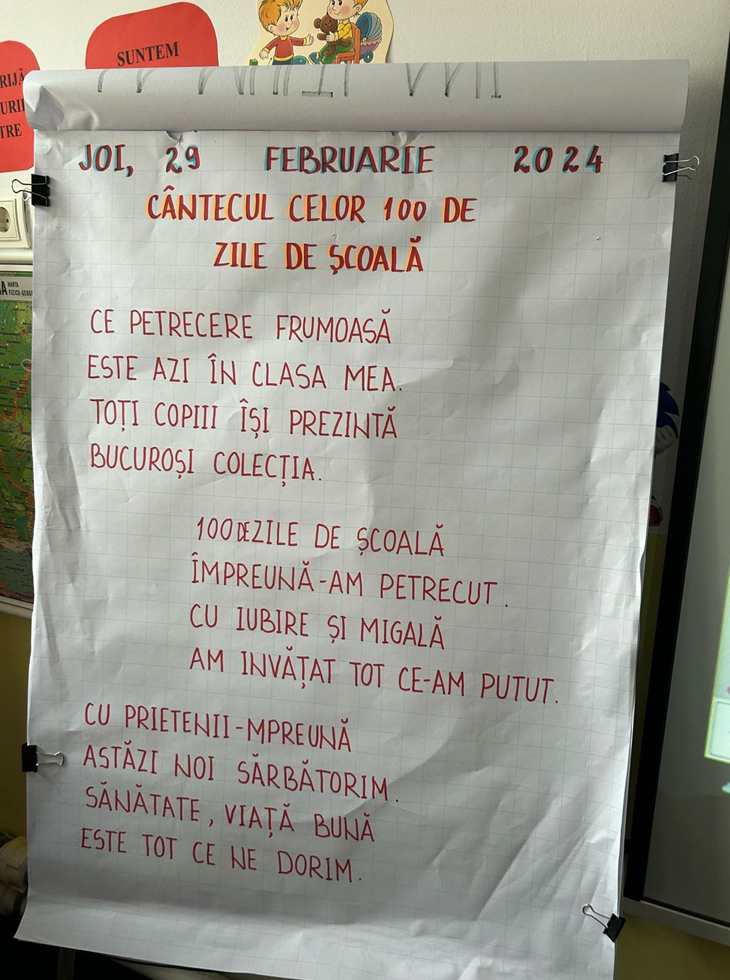 RIJĂ
TRE
SUNTEM
HARTA
JOI, 29 FEBRUARIE 2024
CÂNTECUL CELOR 100 DE
ZILE DE ȘCOALĂ
CE PETRECERE FRUMOASĂ
ESTE AZI ÎN CLASA MEA.
TOȚI COPIII ÎȘI PREZINTĂ
BUCUROȘI COLECȚIA.
100 DE ZILE DE ȘCOALĂ
ÎMPREUNĂ-AM PETRECUT.
CU IUBIRE ȘI MIGALĂ
AM INVĂȚAT TOT CE-AM PUTUT.
CU PRIETENII-MPREUNĂ
ASTĂZI NOI SĂRBĂTORIM.
SĂNĂTATE, VIAȚĂ BUNĂ
ESTE TOT CE NE DORIM.